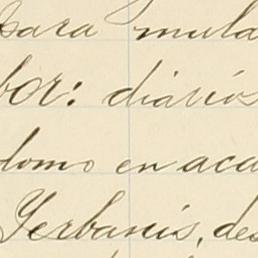 para mula
bor: diarios
lomo en aca
Yerbanis, des